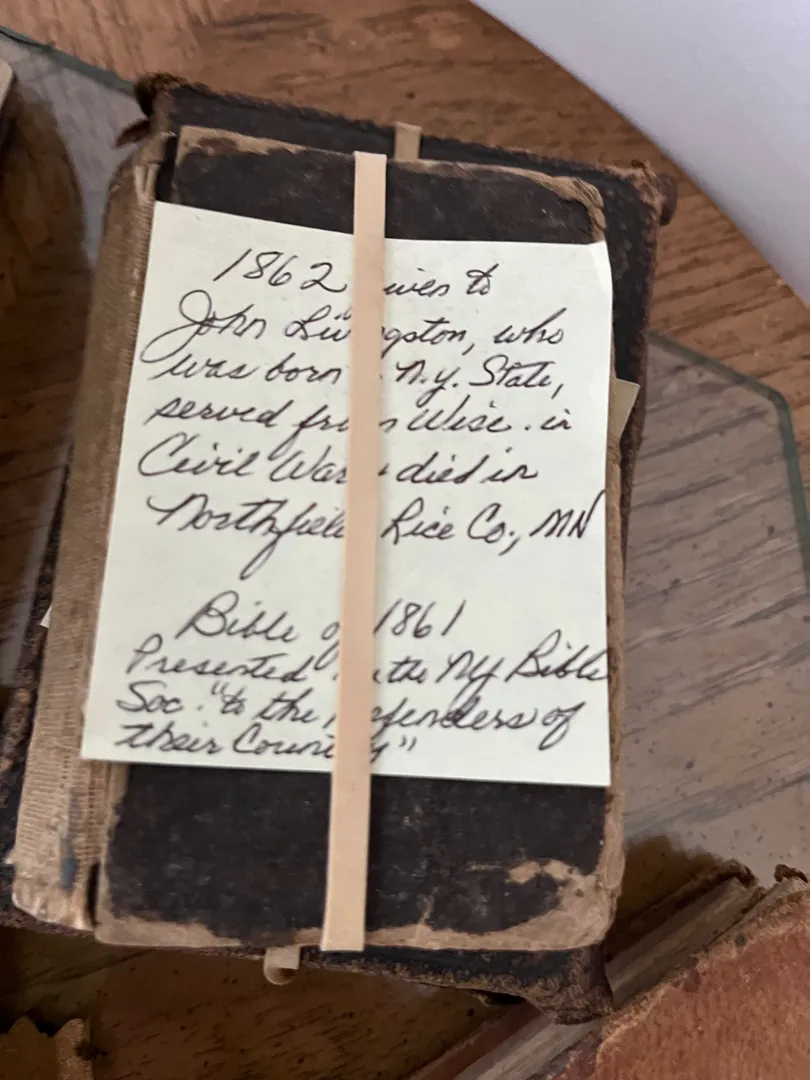 1862 given to
John Livingston, who
was born in N.Y. State,
served from Wisc. in
Civil War & died in
Northfield Rice Co., MN
Bible of 1861
Presented by the NY Bible
Soc. "to the defenders of
their Country"